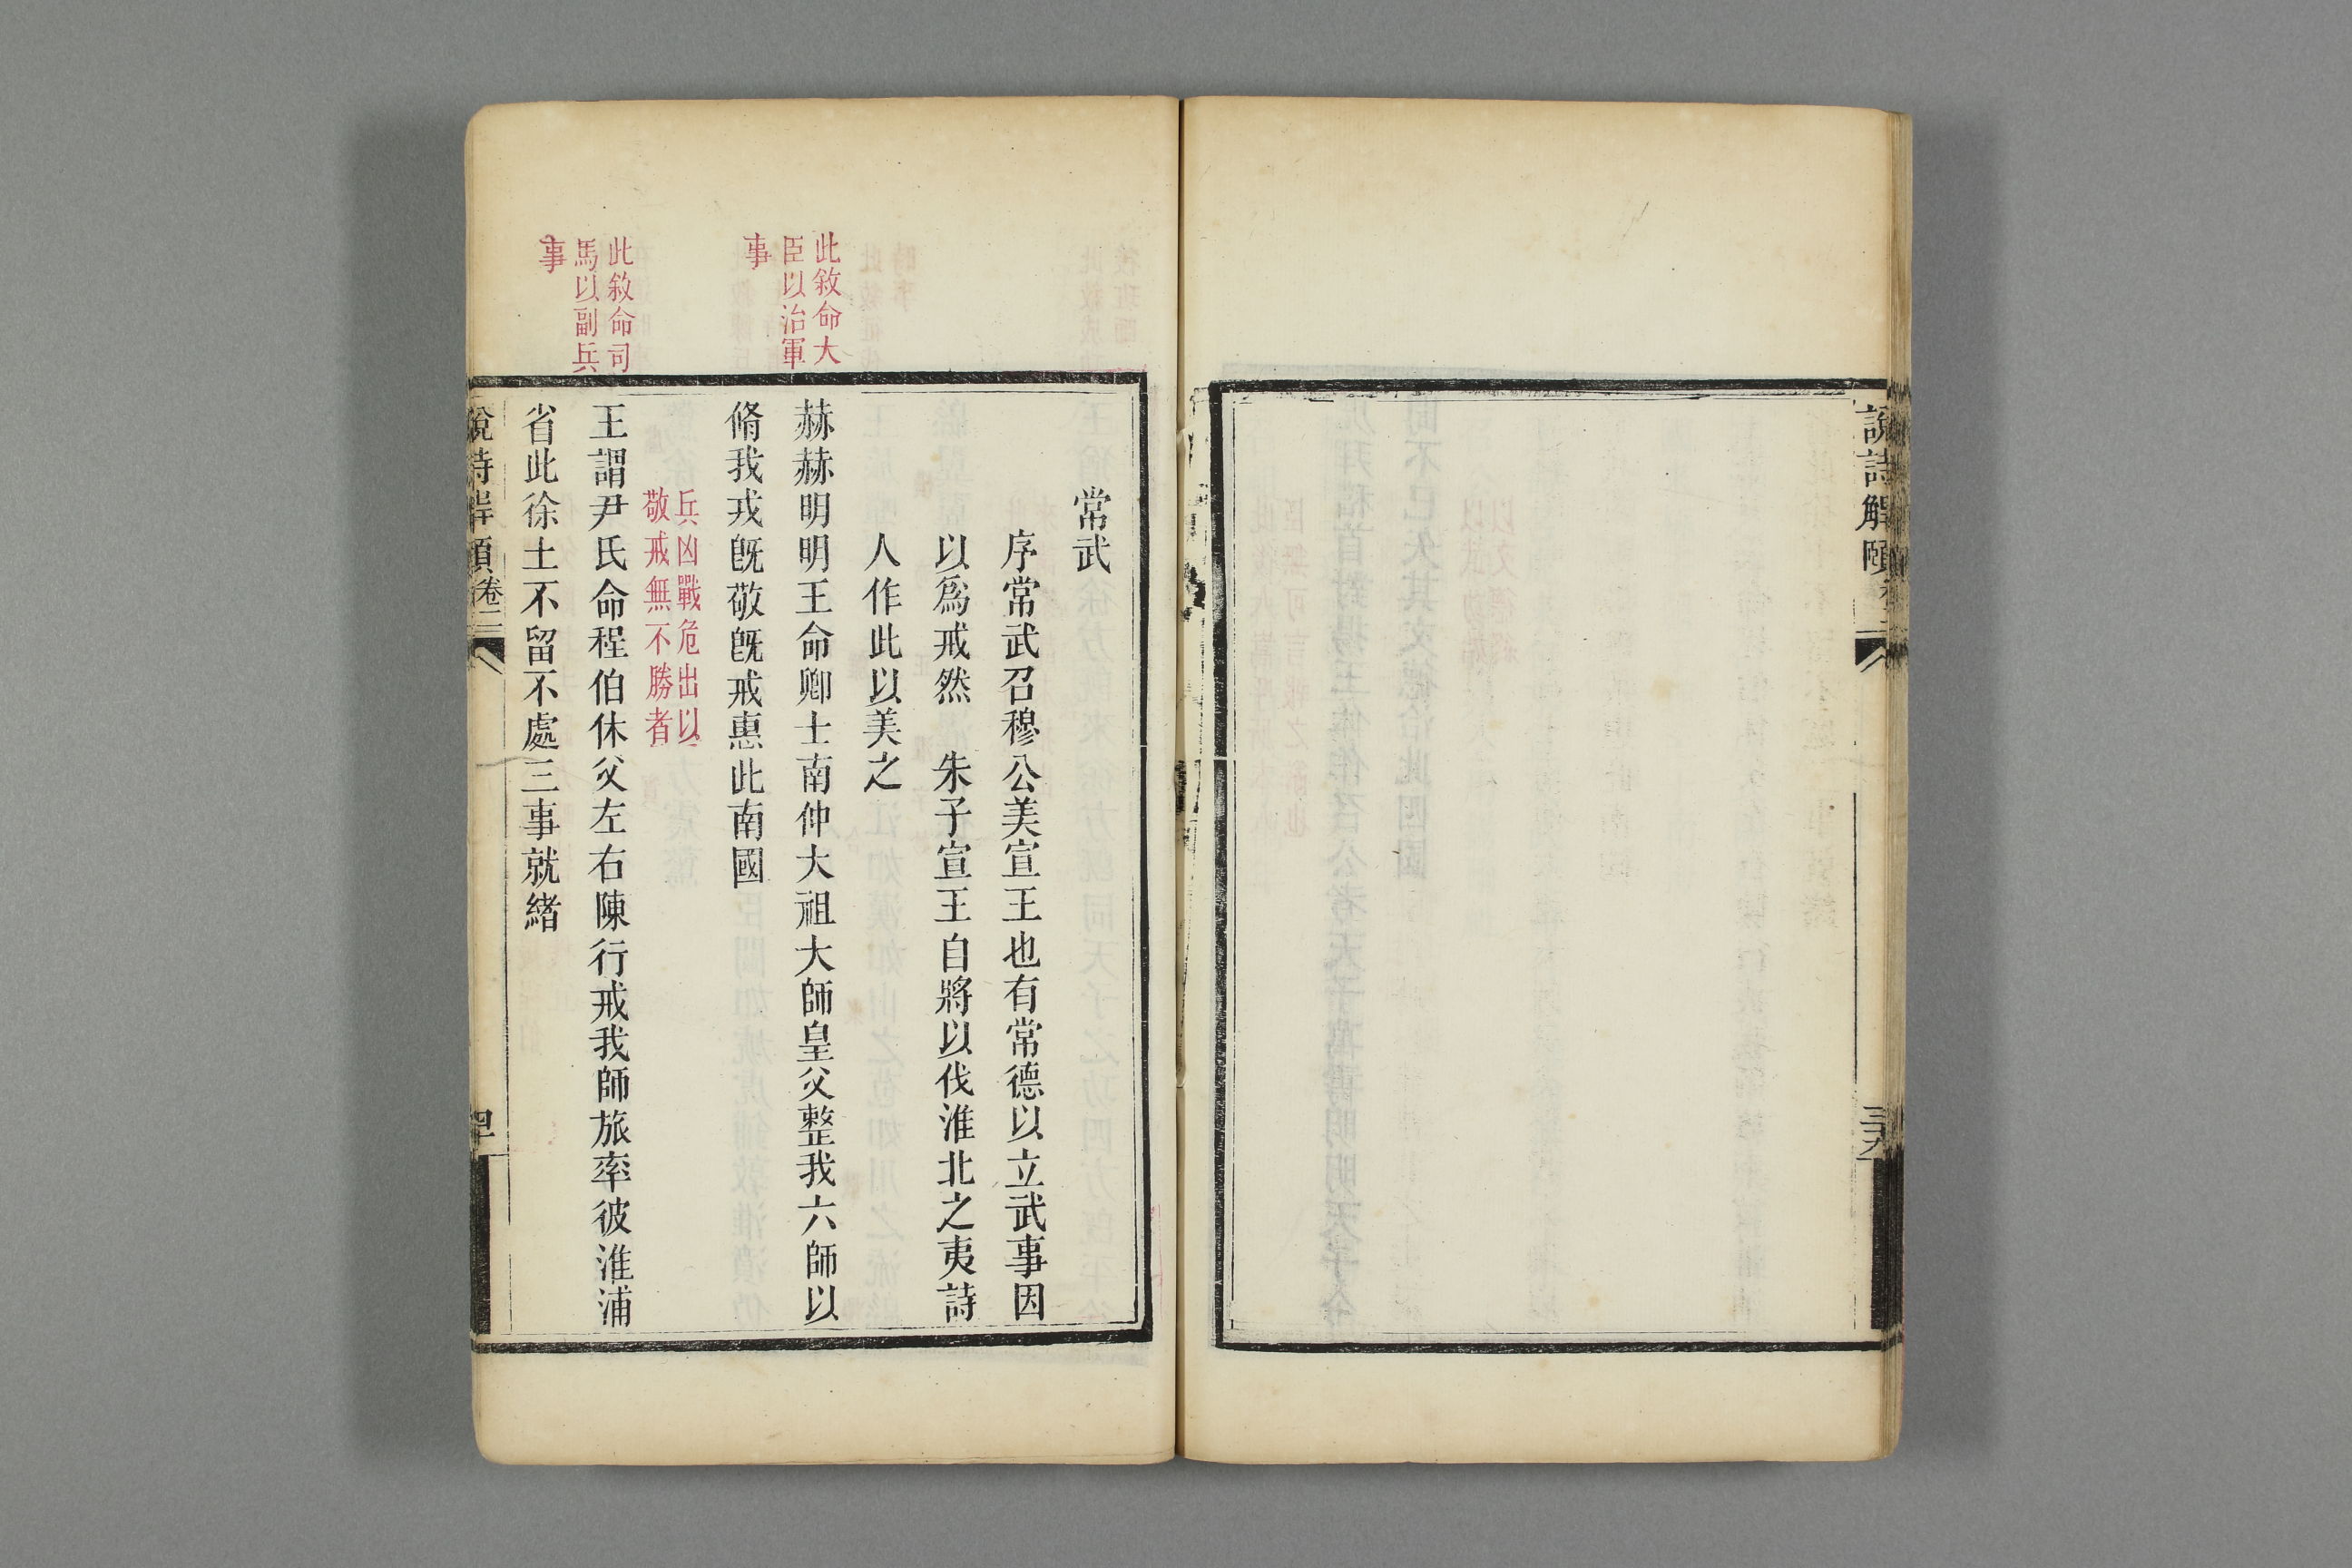 說詩解頤
三十九
此敘命大
臣以治軍
事
此敘命司
馬以副兵
事
常武
序常武召穆公美宣王也有常德以立武事因
以爲戒然 朱子宣王自將以伐淮北之夷詩
人作此以美之
赫赫明明王命卿士南仲大祖大師皇父整我六師以
脩我戎旣敬旣戒惠此南國
兵凶戰危出以
敬戒無不勝者
王謂尹氏命程伯休父左右陳行戒我師旅率彼淮浦
省此徐土不留不處三事就緒
卷二